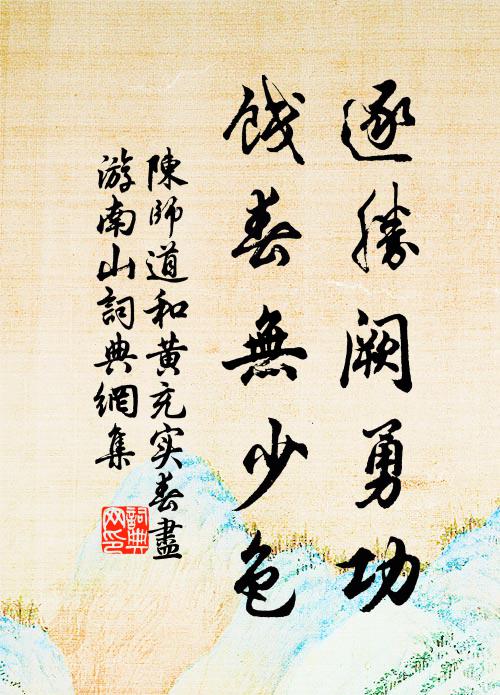 逐勝闕勇功
餞春無少色
陳師道和黃充实春盡
游南山詞典網集
詞典网